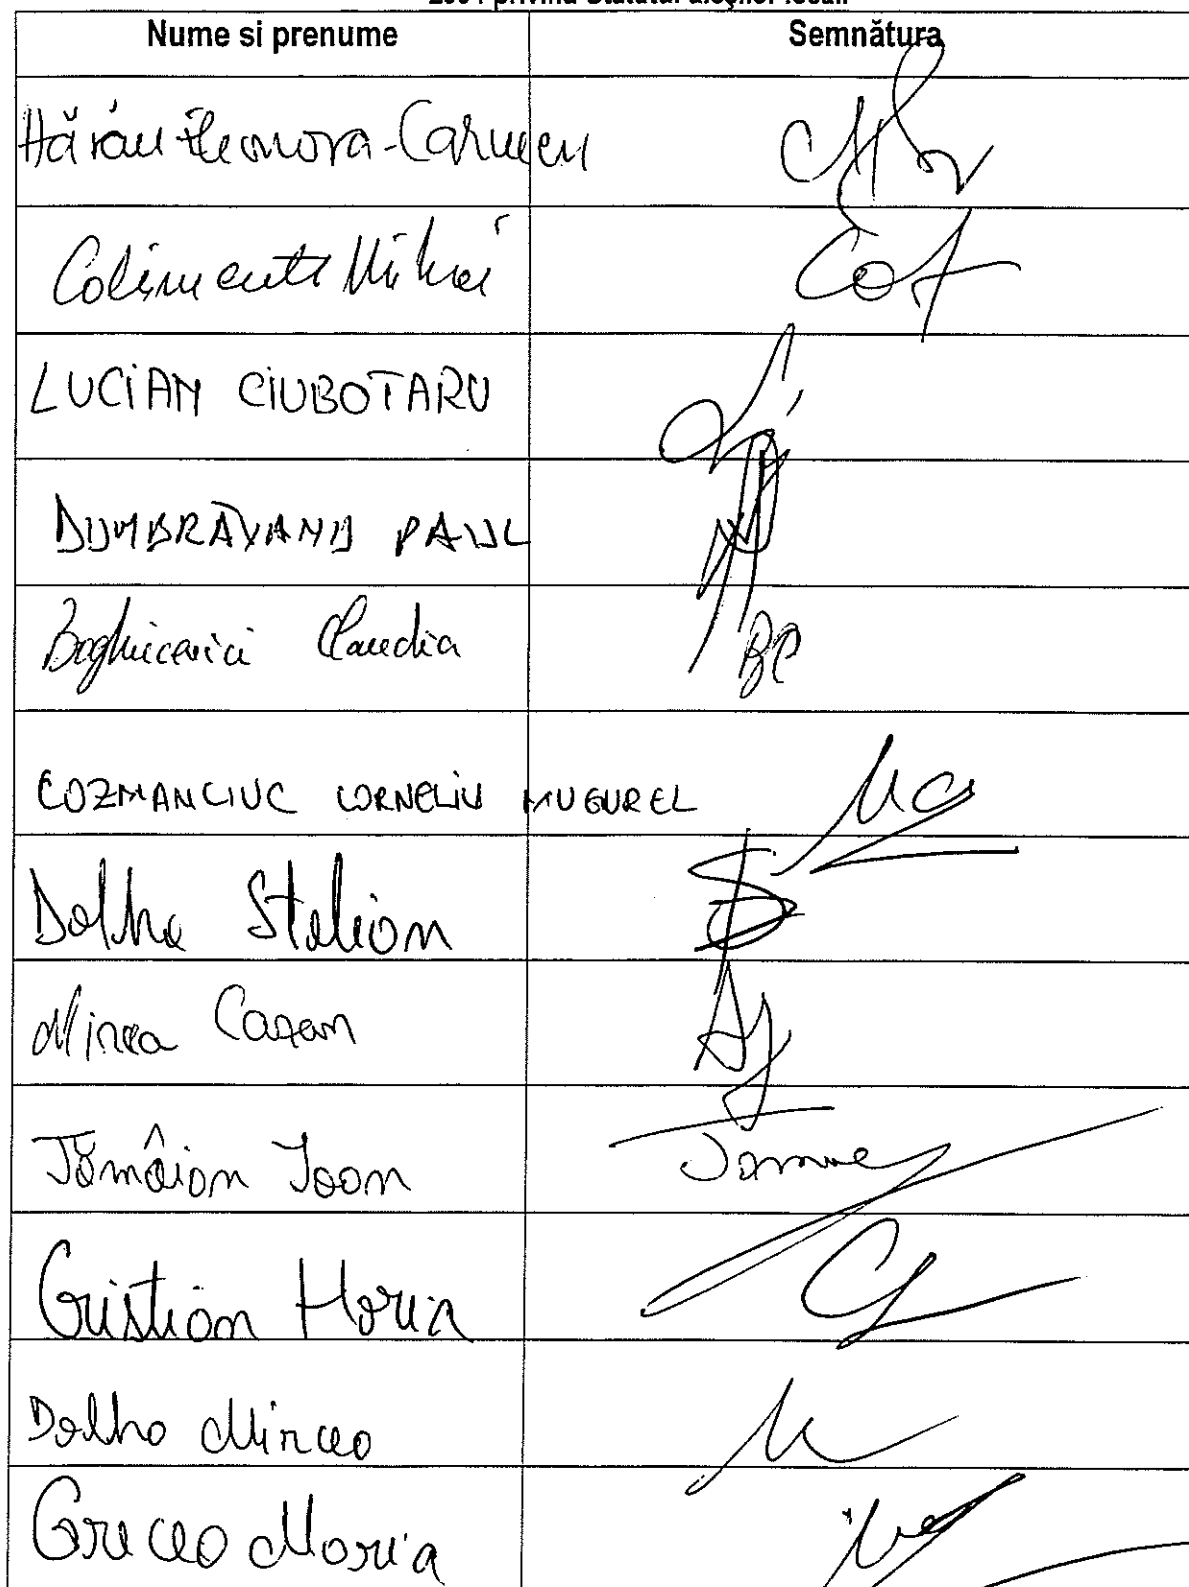 2004 privind Statutul aleşilor locali
Nume si prenume Semnătura
Hărău Eleonora-Carmen
Mihai
LUCIAN CIUBOTARU
DUMBRĂVANU PAUL
Boghicevici Claudia BC
COZMANCIUC CORNELIU MUGUREL
Dolha Stelian
Mircea Cazan
Tămâian Ioan
Cristian Horia
Dolha Mircea
Grecea Maria